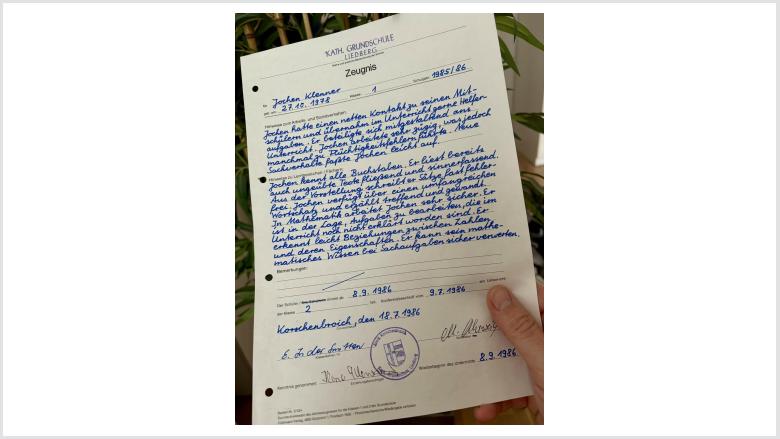 KATH. GRUNDSCHULE
LIEDBERG
Zeugnis
für Jochen Klenner
geb. am 27.10.1978 Klasse 1 Schuljahr 1985/86
Hinweise zum Arbeits- und Sozialverhalten:
Jochen hatte einen netten Kontakt zu seinen Mit-
schülern und übernahm im Unterricht gerne Helfer-
aufgaben. Er beteiligte sich mitgestaltend am
Unterricht. Jochen arbeitete sehr zügig, was jedoch
manchmal zu Flüchtigkeitsfehlern führte. Neue
Sachverhalte faßte Jochen leicht auf.
Hinweise zu Lernbereichen / Fächern:
Jochen kennt alle Buchstaben. Er liest bereits
auch ungeübte Texte fließend und sinnerfassend.
Aus der Vorstellung schreibt er Sätze fast fehler-
frei. Jochen verfügt über einen umfangreichen
Wortschatz und erzählt treffend und gewandt.
In Mathematik arbeitet Jochen sehr sicher. Er
ist in der Lage, Aufgaben zu bearbeiten, die im
Unterricht noch nicht erklärt worden sind. Er
erkennt leicht Beziehungen zwischen Zahlen
und deren Eigenschaften. Er kann sein mathe-
matisches Wissen bei Sachaufgaben sicher verwerten.
Bemerkungen:
Der Schüler / nimmt ab 8.9.1986 am Unterricht
der Klasse 2 teil. Konferenzbeschluß vom 9.7.1986
Korschenbroich, den 18.7.1986
Kenntnis genommen:
Erziehungsberechtigter
Wiederbeginn des Unterrichts: 8.9.1986